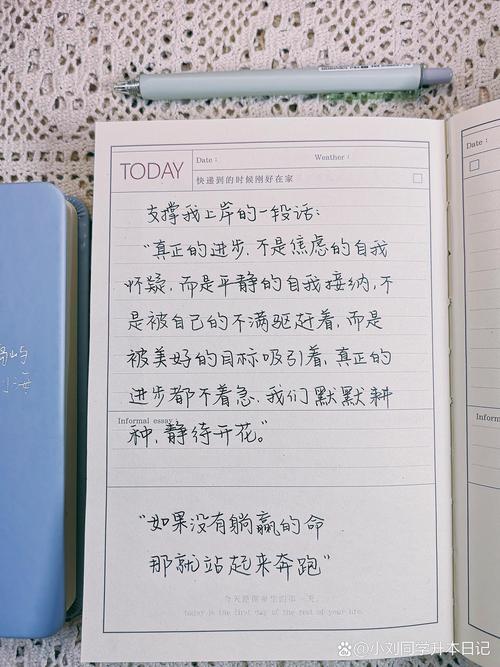 TODAY
Date：
Weather：
快递到的时候刚好在家
支撑我上岸的一段话：
“真正的进步,不是焦虑的自我
怀疑,而是平静的自我接纳,不
是被自己的不满驱赶着,而是
被美好的目标吸引着,真正的
进步都不着急,我们默默耕
Informal essay：
种,静待开花。”
“如果没有躺赢的命
那就站起来奔跑”
today is the first day of the rest of your life.
Informal
小刘同学升本日记